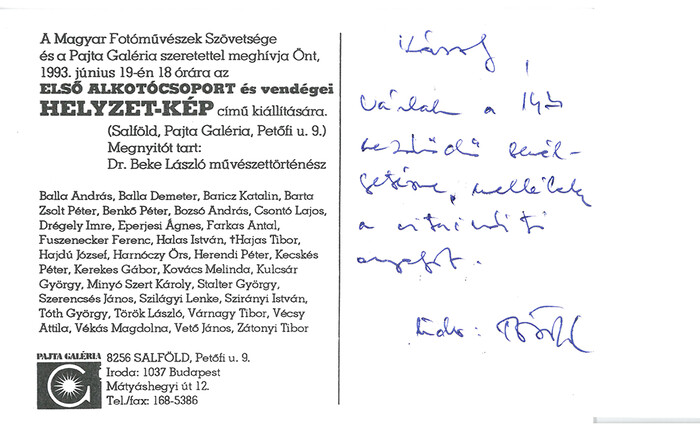 A Magyar Fotóművészek Szövetsége
és a Pajta Galéria szeretettel meghívja Önt,
1993. június 19-én 18 órára az
ELSŐ ALKOTÓCSOPORT és vendégei
HELYZET-KÉP című kiállítására.
(Salföld, Pajta Galéria, Petőfi u. 9.)
Megnyitót tart:
Dr. Beke László művészettörténész
Balla András, Balla Demeter, Baricz Katalin, Barta
Zsolt Péter, Benkő Péter, Bozsó András, Csontó Lajos,
Drégely Imre, Eperjesi Ágnes, Farkas Antal,
Fuszenecker Ferenc, Halas István, †Hajas Tibor,
Hajdú József, Harnóczy Örs, Herendi Péter, Kecskés
Péter, Kerekes Gábor, Kovács Melinda, Kulcsár
György, Minyó Szert Károly, Stalter György,
Szerencsés János, Szilágyi Lenke, Szirányi István,
Tóth György, Török László, Várnagy Tibor, Vécsy
Attila, Vékás Magdolna, Vető János, Zátonyi Tibor
PAJTA GALÉRIA
8256 SALFÖLD, Petőfi u. 9.
Iroda: 1037 Budapest
Mátyáshegyi út 12.
Tel./fax: 168-5386
Várlak a
kezdődő beszél-
getésre, mellékelve
a vitaindító
anyagot.